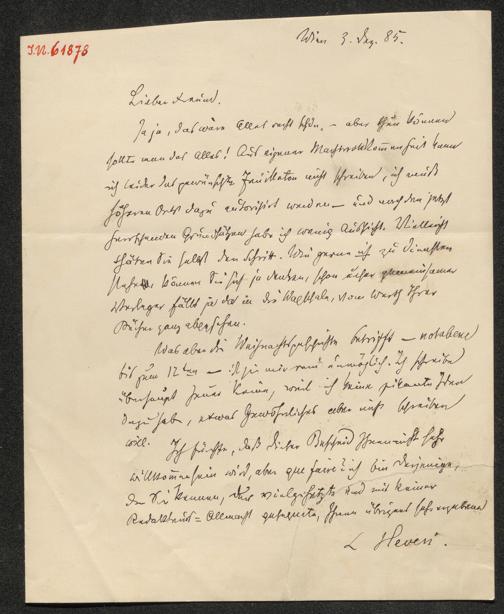 I.N. 61878
Wien 3. Dez. 85.
Lieber Freund.
Ja ja, das wäre Alles recht schön, – aber schön können
sollte man das Alles! Aus eigener Machtvollkommenheit kann
ich leider das gewünschte Feuilleton nicht schreiben, ich muß
höheren Orts dazu autorisirt werden – und nach den jetzt
herrschenden Grundsätzen habe ich wenig Aussicht. Vielleicht
thäten Sie selbst den Schritt. Wie gerne ich zu Diensten
stehe, können Sie sich ja denken, schon unser gemeinsamer
Verleger fällt ja da in die Wagschale, vom Werth Ihrer
Bücher ganz abgesehen.
Was aber die Weihnachtsgeschichte betrifft – notabene
bis zum 12ten – ist sie mir rein unmöglich. Ich schreibe
überhaupt heuer keine, weil ich keine pikante Idee
dazu habe, etwas Gewöhnliches aber nicht schreiben
will. Ich fürchte, daß dieser Bescheid Ihnen nicht sehr
willkommen sein wird, aber que faire? ich bin derjenige,
den Sie kennen, der vielgeplagte und mit keiner
Redakteurs-Allmacht gesegnete, Ihnen übrigens sehr ergebene
L Hevesi.